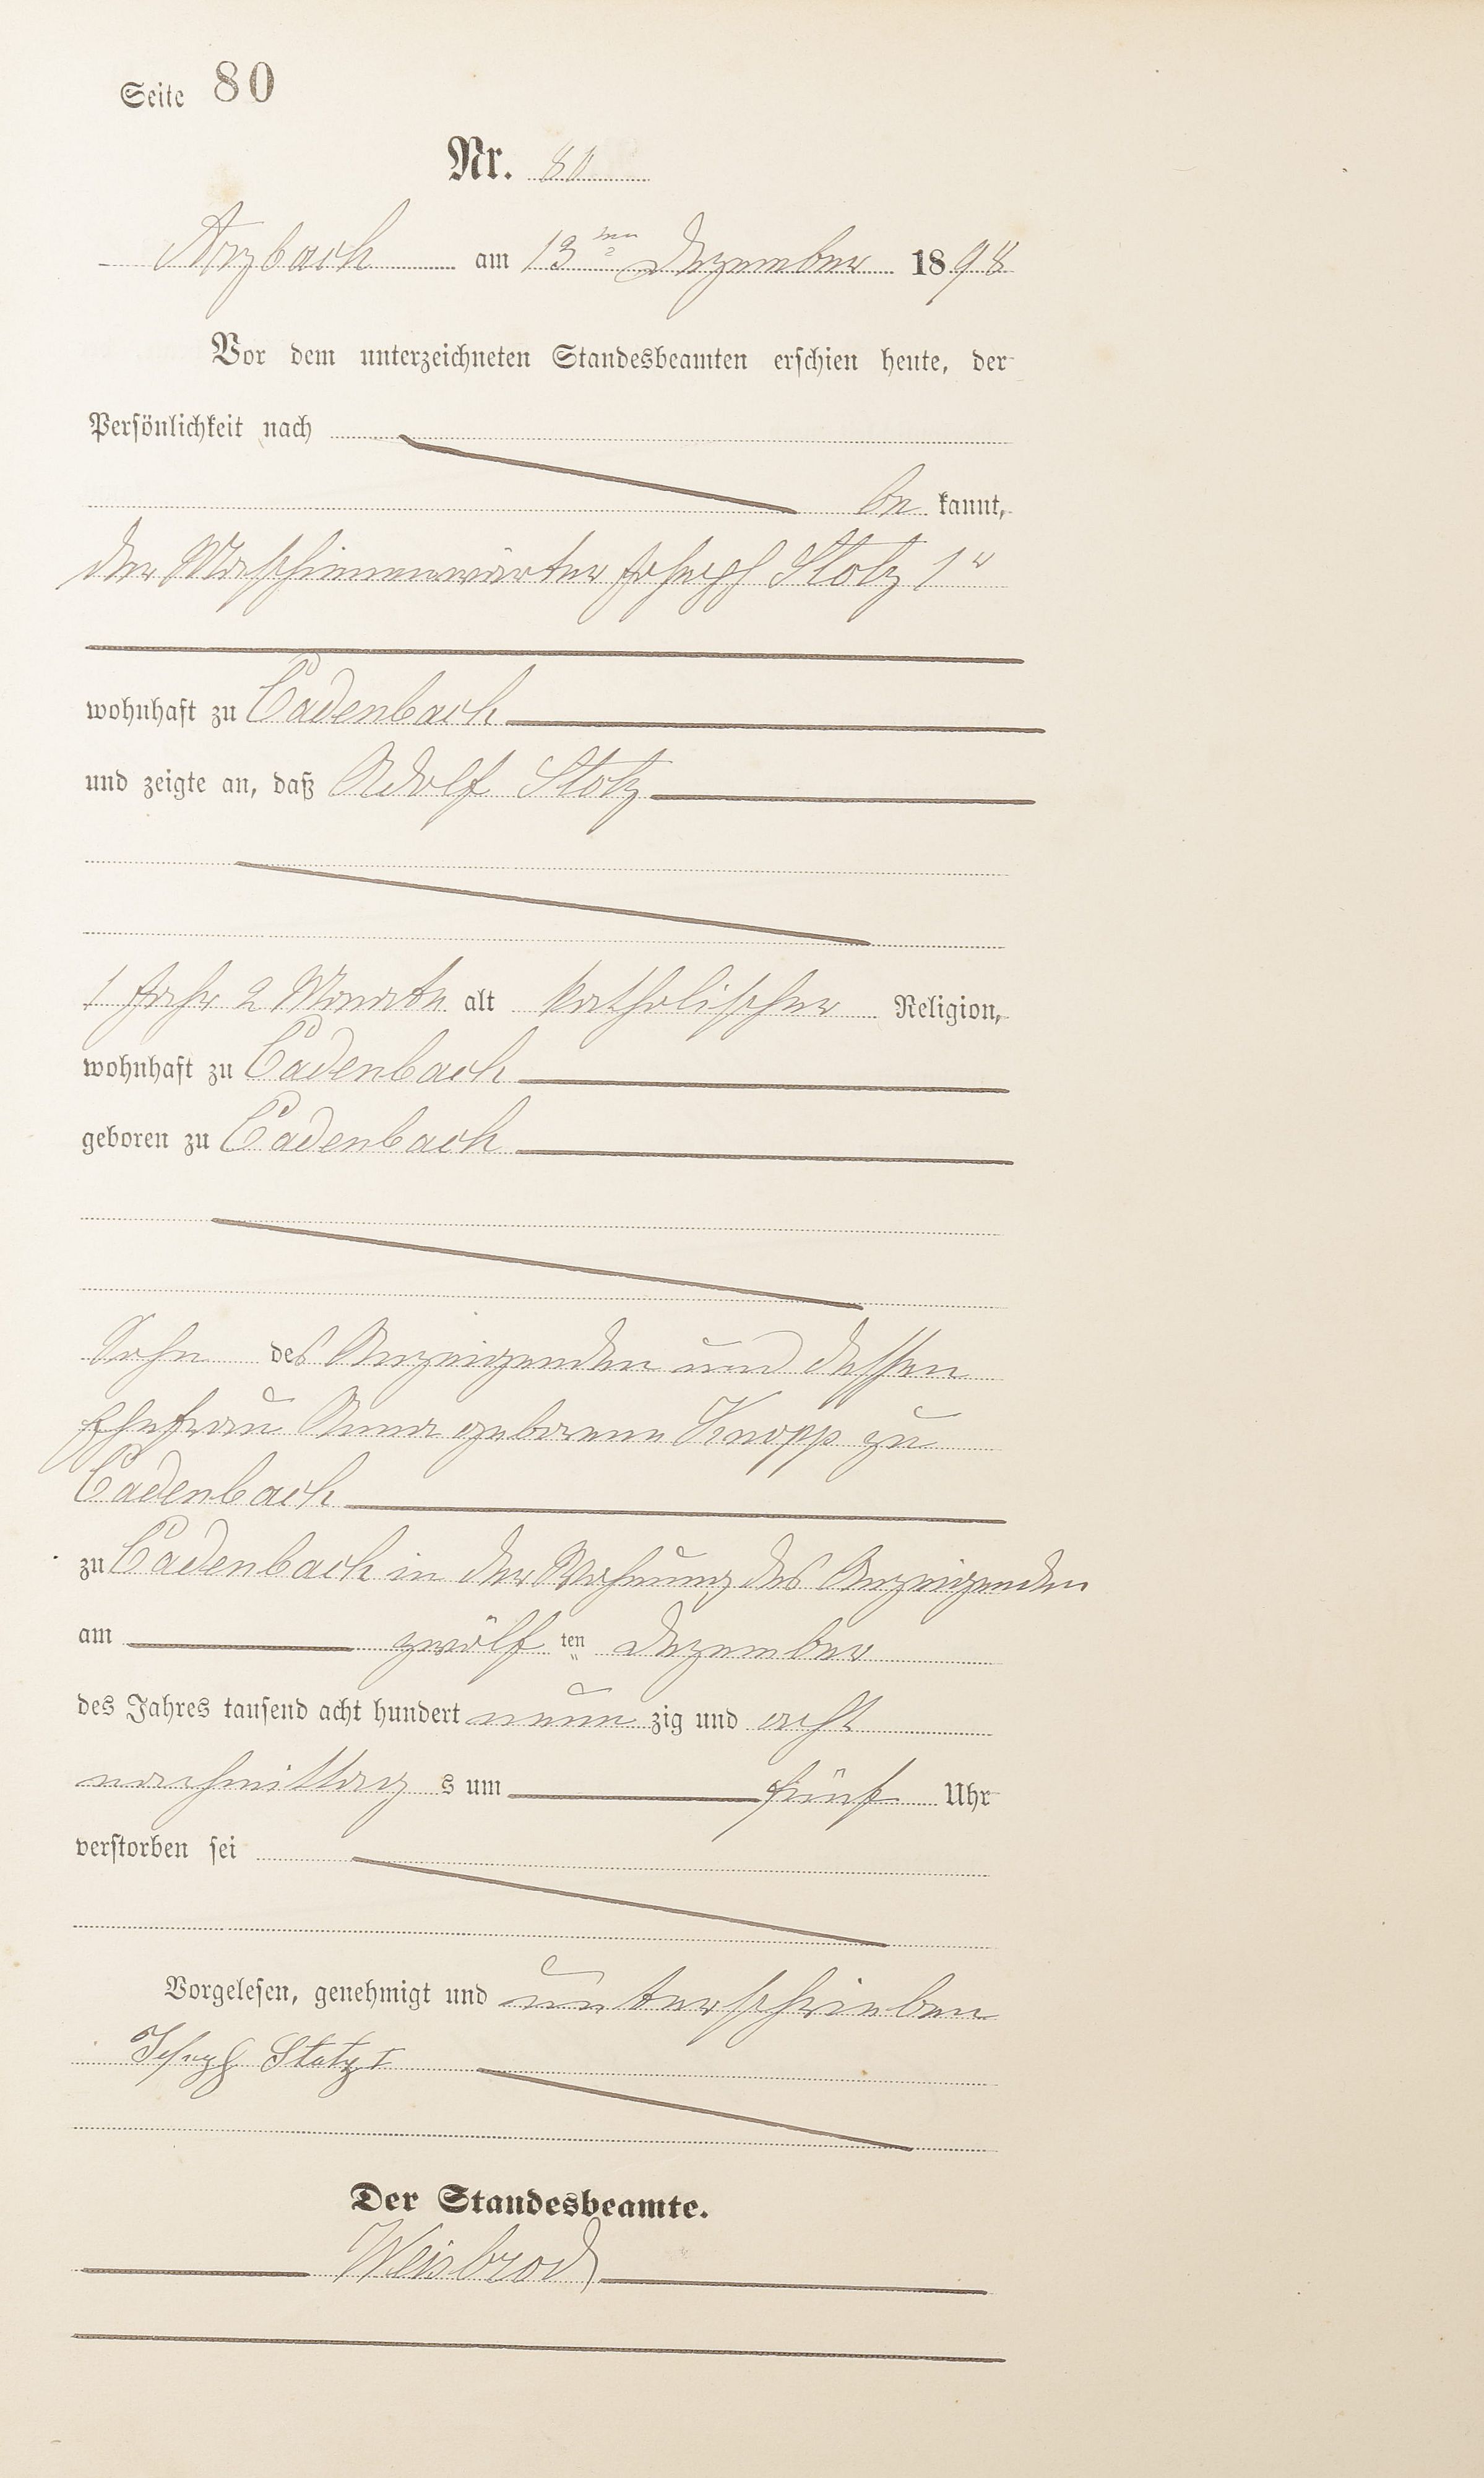 Seite 80
Nr. 80
Arzbach am 13ten Dezember 1898
Vor dem unterzeichneten Standesbeamten erschien heute, der
Persönlichkeit nach
be kannt,
der Maschinenwärter Joseph Stotz 1r
wohnhaft zu Cadenbach
und zeigte an, daß Adolf Stotz
1 Jahr 2 Monate alt katholischer Religion,
wohnhaft zu Cadenbach
geboren zu Cadenbach
Sohn des Anzeigenden und dessen
Ehefrau Anna geborene Knopp zu
Cadenbach
zu Cadenbach in der Wohnung des Anzeigenden
am zwölf ten Dezember
des Jahres tausend acht hundert neun zig und acht
nachmittag s um fünf Uhr
verstorben sei
Vorgelesen, genehmigt und unterschrieben
Joseph Stotz I
Der Standesbeamte.
Weisbrod